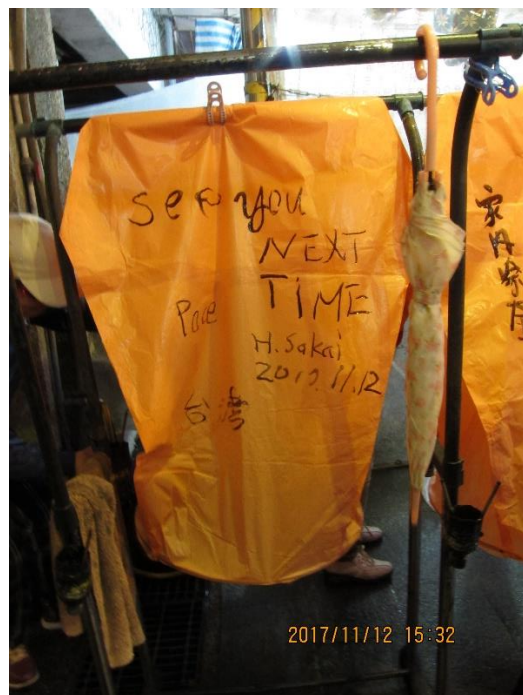 see you
NEXT
TIME
H. Sakai
2017.11.12
台湾
家内
2017/11/12 15:32